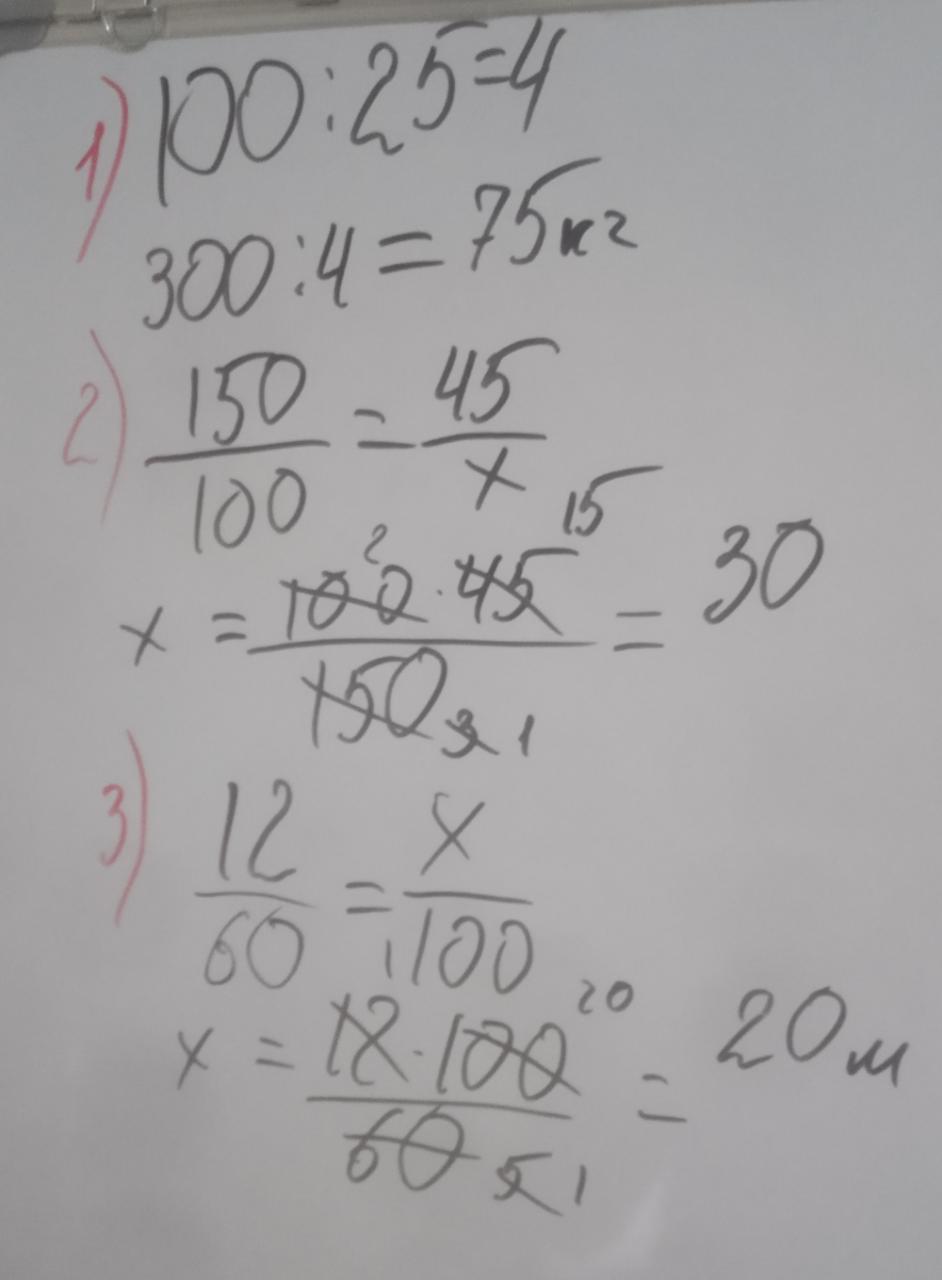 1) 100 : 25 = 4
300 : 4 = 75 кг
2) 150/100 = 45/x
x = 100 2 · 45 15 / 150 3 1 = 30
3) 12/60 = x/100
x = 12 · 100 20 / 60 5 1 = 20 м